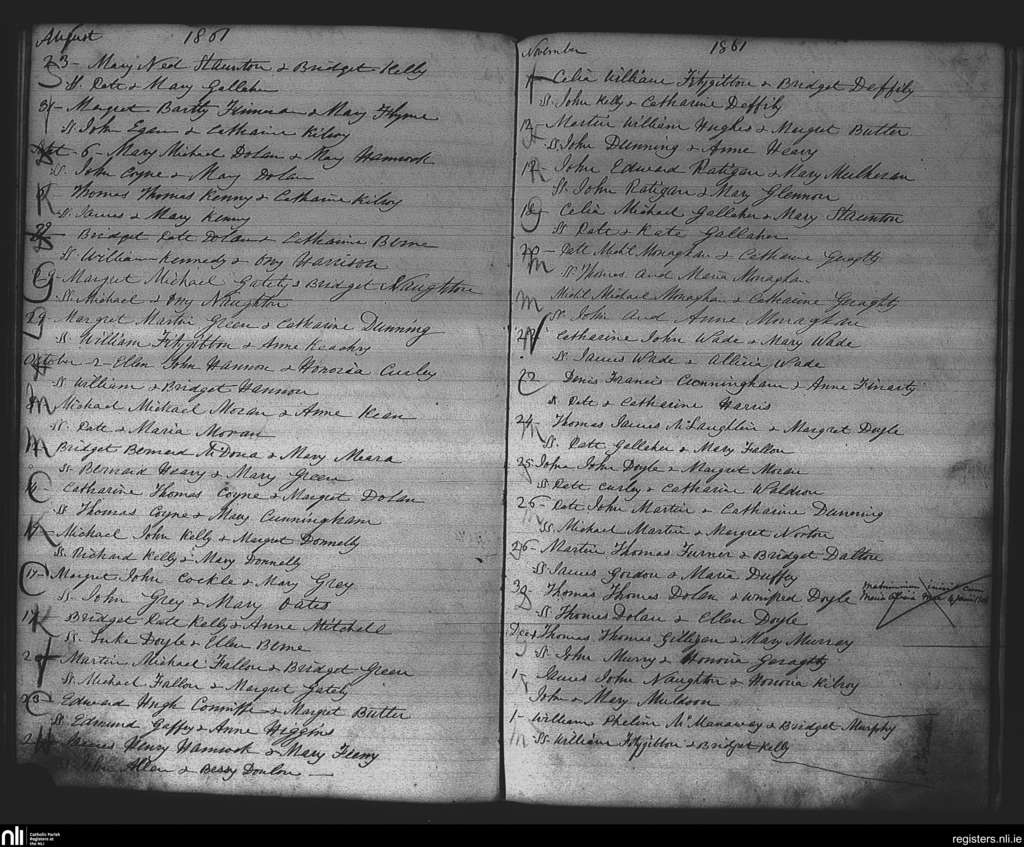 August 1861
23- Mary Ned Staunton & Bridget Kelly
Ss. Patt & Mary Gallaher
31- Margret Bartly & Mary Flynne
Ss. John Egan & Catharine Kilroy
Sept 6- Mary Michael Dolan & Mary Hamrock
Ss. John Coyne & Mary Dolan
Thomas Thomas Kenny & Catharine Kilroy
Ss. James & Mary Kenny
Bridget Patt Dolan & Catharine Berne
Ss. William Kennedy & Ony Harrison
Margret Michael Gately & Bridget Naughton
Ss. Michael & Ony Naughton
29- Margret Martin Green & Catharine Dunning
Ss. William Fitzgibbon & Anne Keachry
October 2- Ellen John Hannon & Honoria Curley
Ss. William & Bridget Hannon
Michael Michael Moran & Anne Kean
Ss. Patt & Maria Moran
Bridget Bernard & Mary Meara
Ss. Bernard Heavy & Mary Green
Catharine Thomas Coyne & Margret Dolan
Ss Thomas Coyne & Mary Cunningham
Michael John Kelly & Margret Donnelly
Ss. Richard Kelly & Mary Donnelly
14- Margret John Cockle & Mary Grey
Ss- John Grey & Mary Oates
Bridget Patt Kelly & Anne Mitchell
Ss. Luke Doyle & Ellen Berne
Martin Michael Fallon & Bridget Green
Ss. Michael Fallon & Margret Gately
Edward Hugh Conniffe & Margret Butler
Ss Edmund Gaffy & Anne Higgins
Henry Hamrock & Mary Feeny
John Allen & Bessy Donlon
November 1861
Celia William Fitzgibbon & Bridget Deffily
Ss. John Kelly & Catharine Deffily
12- Martin William Hughes & Margret Butler
Ss John Dunning & Anne Heavy
John Edward Ratigan & Mary Mulheran
Ss. John Ratigan & Mary Glennon
Celia Michael Gallaher & Mary Staunton
Ss Patt & Kate Gallaher
20- Patt Michl Monaghan & Catharine Geraghty
Ss Thomas and Maria Monaghan
Michl Michael Monaghan & Catharine Geraghty
Ss John and Anne Monaghan
Catharine John Wade & Mary Wade
Ss. James Wade & Allicia Wade
22 Denis Francis Cunningham & Anne Finarty
Ss Patt & Catharine Harris
24- Thomas James McLaughlin & Margret Doyle
Ss. Patt Gallaher & Mary Fallon
25- John John Doyle & Margret Moran
Ss Patt Curley & Catharine Waldron
26- Patt John Martin & Catharine Dunning
Ss. Michael Martin & Margret Norton
26- Martin Thomas Turner & Bridget Dalton
Ss James Gordon & Maria Duffey
30- Thomas Thomas Dolan & Winifred Doyle
Ss Thomas Dolan & Ellen Doyle
Dec 1 Thomas Thomas Gilligan & Mary Murray
Ss. John Murry & Honoria Geraghty
1- James John Naughton & Honoria Kilroy
John & Mary Muldoon
1- William Phelim McManaway & Bridget Murphy
Ss. William Fitzgibbon & Bridget Kelly
nli Catholic Parish
Registers at
the NLI
registers.nli.ie